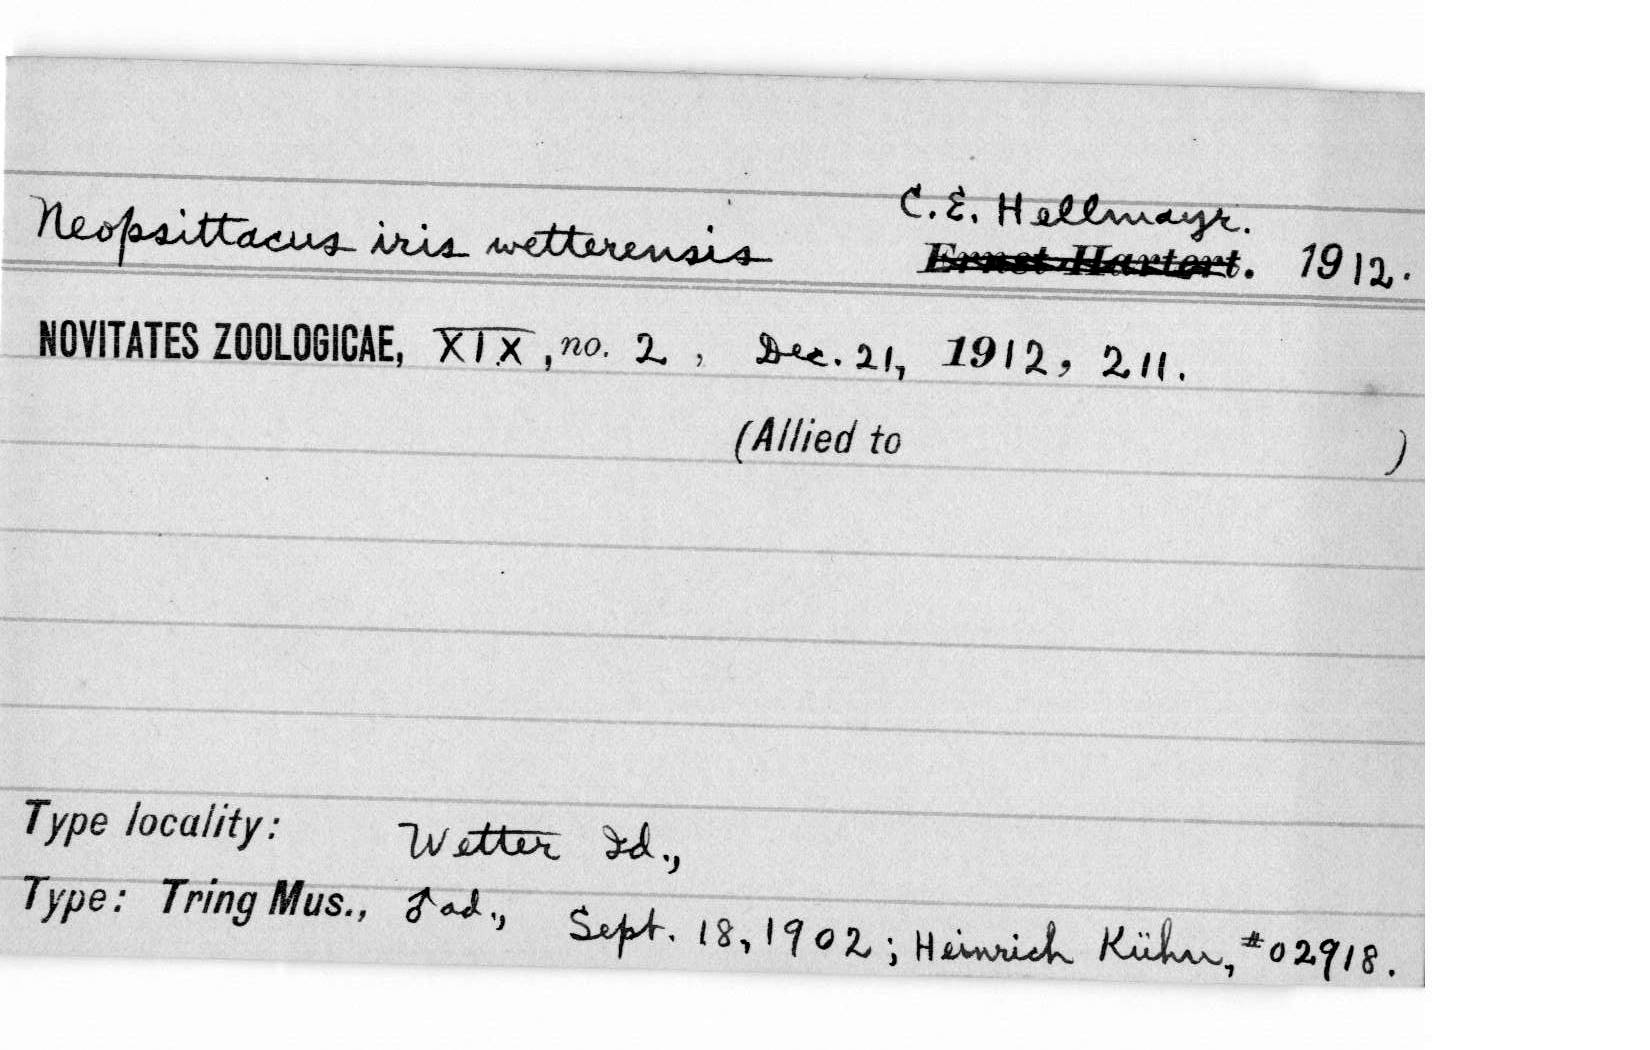 Neopsittacus iris wetterensis C. E. Hellmayr.
Ernst Hartert. 1912.
NOVITATES ZOOLOGICAE, XIX, no. 2, Dec. 21, 1912, 211.
(Allied to )
Type locality: Wetter Id.,
Type: Tring Mus., ♂ ad., Sept. 18, 1902; Heinrich Kühn, #02918.